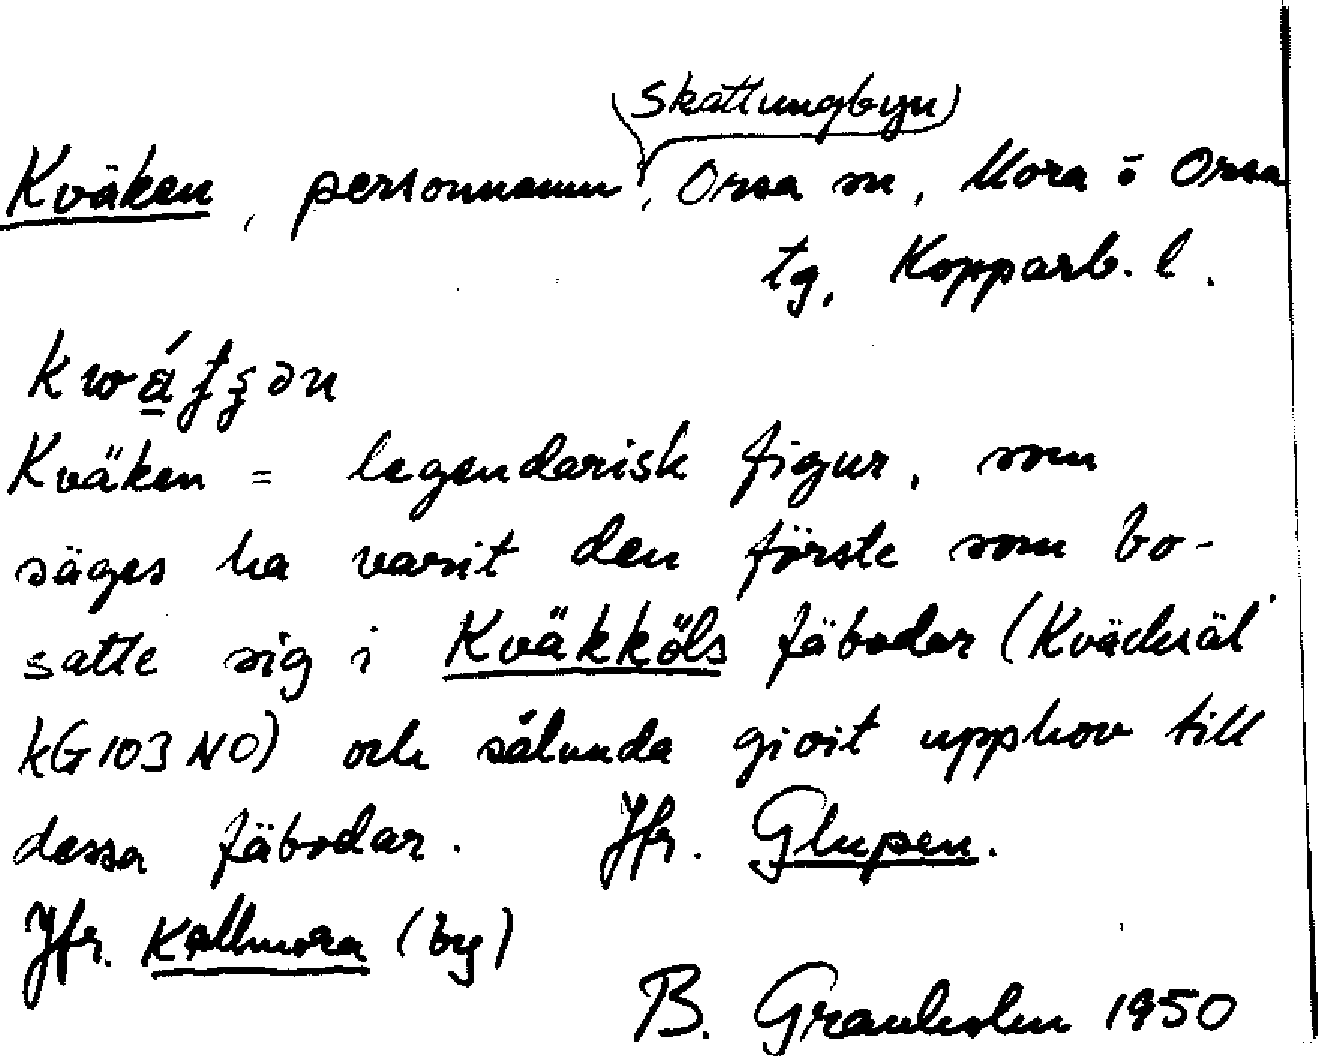 Skattungbyn
Kväken, personnamn, Orsa sn, Mora o Orsa
tg, Kopparb. l.
Kväken = legendarisk figur, som
säges ha varit den förste som bo-
satte sig i Kväkköls fäbodar (Kväcksäl
kG103NO) och sålunda givit upphov till
dessa fäbodar. Jfr. Glupen.
Jfr. Kallmora (by)
B. Granholm 1950